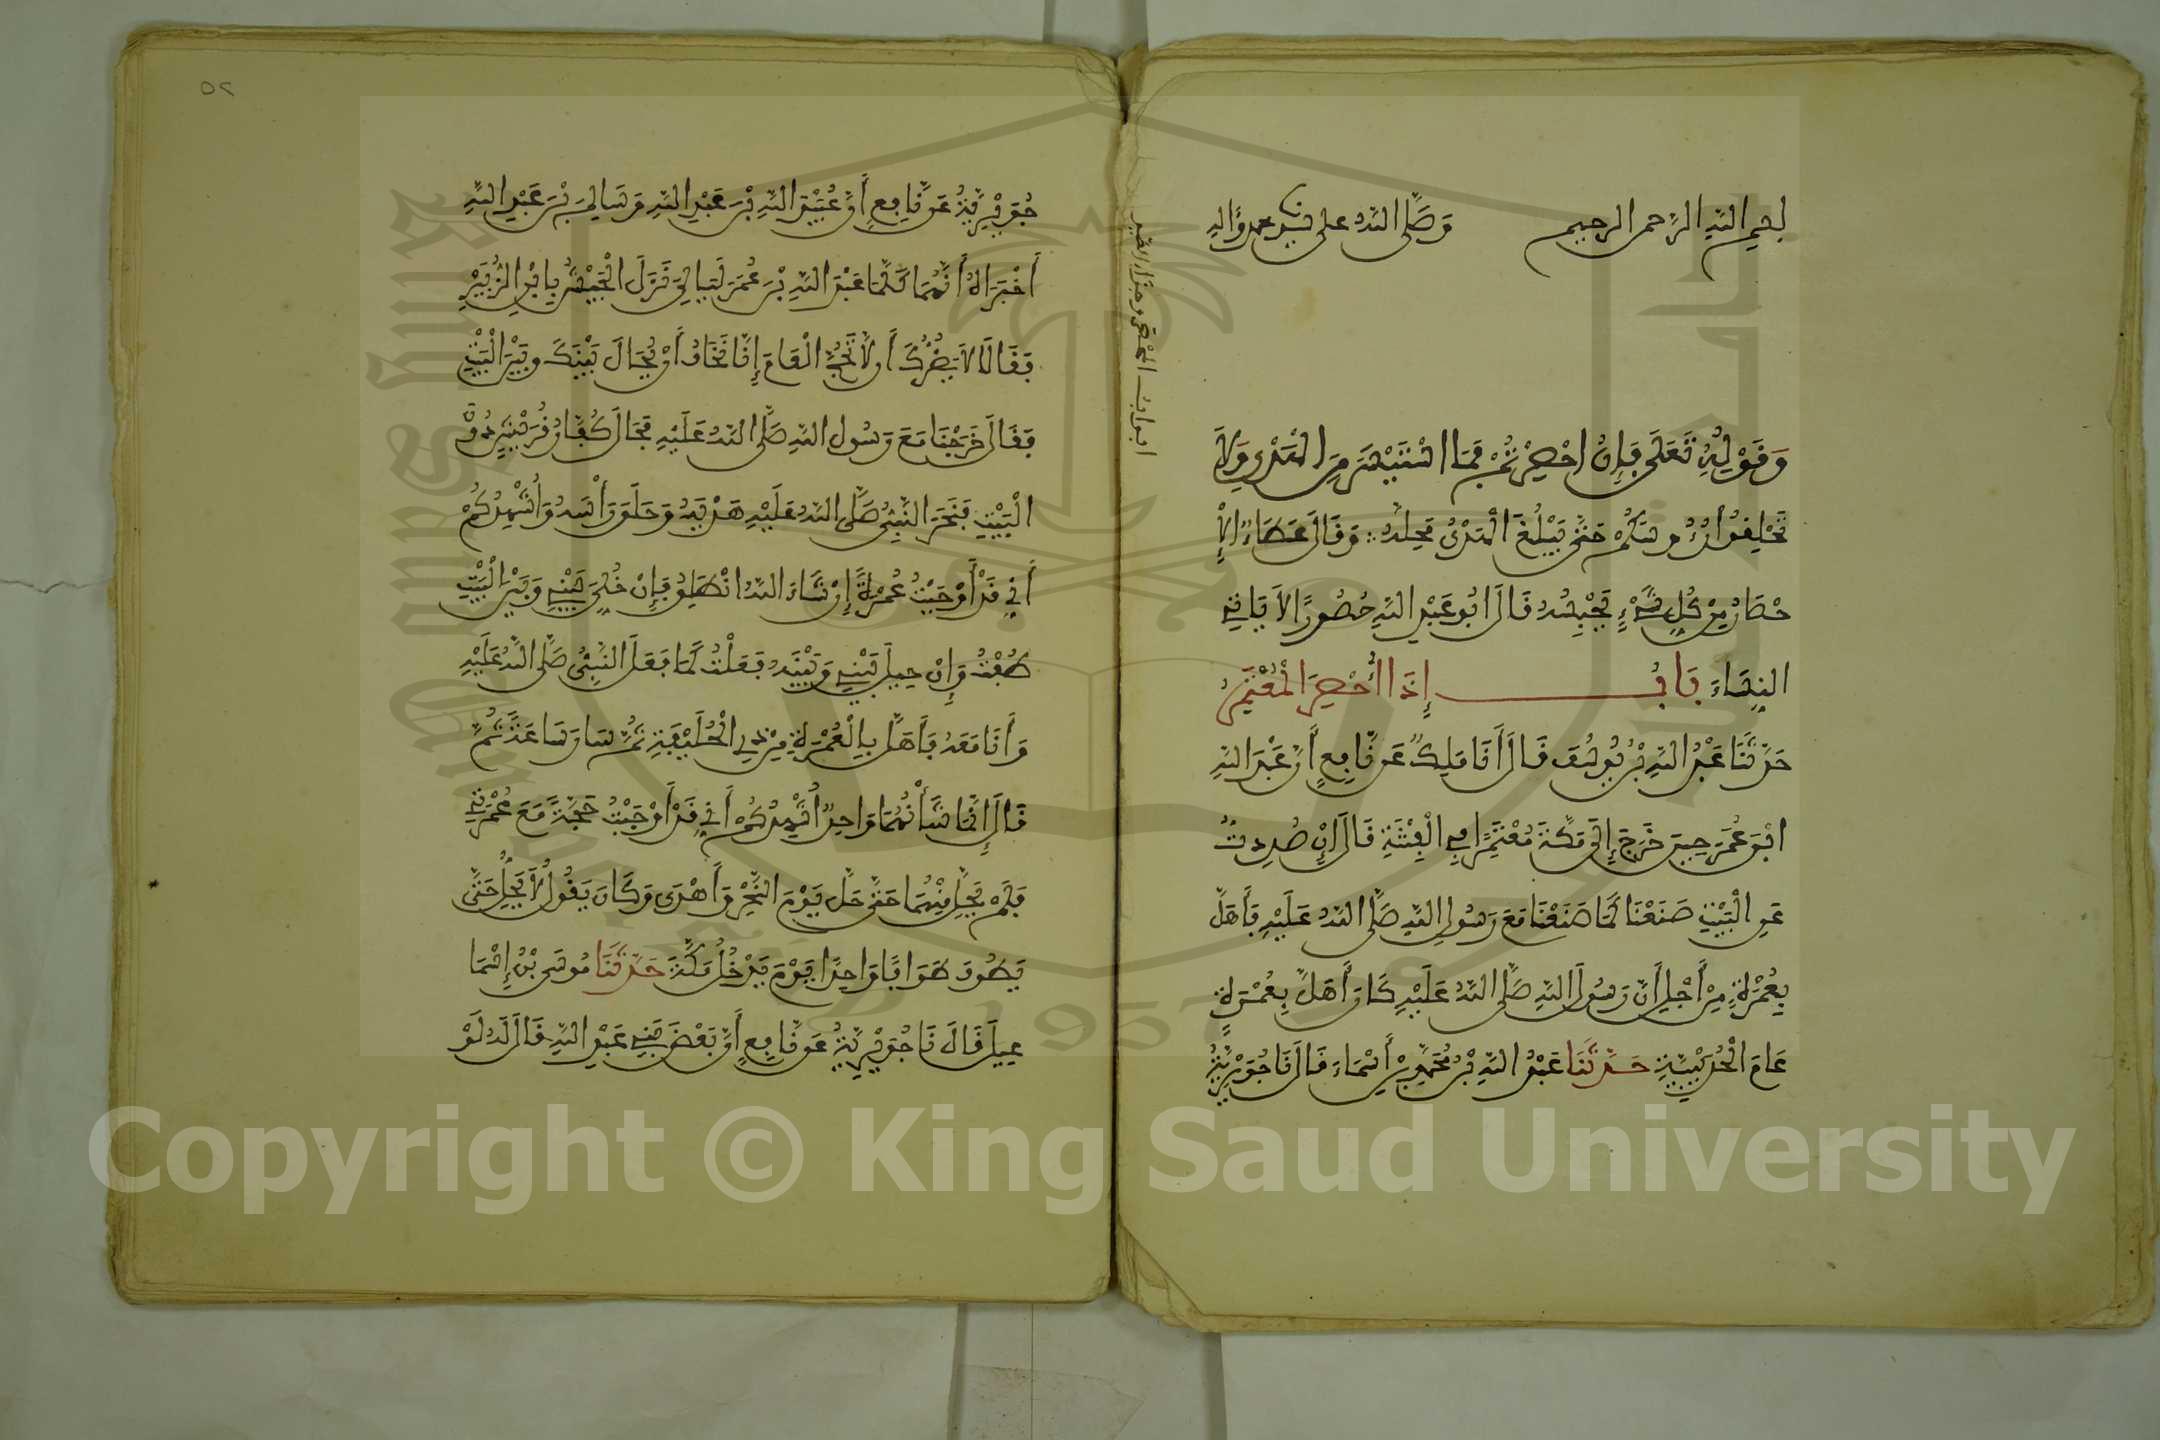 بسم الله الرحمن الرحيم وصلى الله على سيدنا محمد وءاله
أبواب المحصر وجزاء الصيد
وَقَوْلِهِ تَعَلَى فَإِنُ احْصِرْتُمْ فَمَا اسْتَيْسَرَ مِنَ الْهَدْيِ وَلاَ
تَحْلِقُوا رُءُوسَكُمْ حَتَّى يَبْلُغَ الْهَدْيُ مَحِلَّهُ وَقَالَ عَطَاءٌ الإِ
حْصَارُ مِنْ كُلِّ شَيْءٍ يَحْبِسُهُ قَالَ ابُو عَبْدِ اللهِ حَصُورًا لاَ يَاتِي
النِّسَاءَ بَابُ إِذَا أُحْصِرَ الْمُعْتَمِرُ
حَدَّثَنَا عَبْدُ اللهِ بْنُ يُوسُفَ قَالَ أَنَا مَلِكٌ عَن نَّافِعٍ أَنَّ عَبْدَ اللهِ
ابْنَ عُمَرَ حِينَ خَرَجَ إِلَى مَكَّةَ مُعْتَمِرًا فِي الْفِتْنَةِ قَالَ إِنْ صُدِدتُّ
عَنِ الْبَيْتِ صَنَعْنَا كَمَا صَنَعْنَا مَعَ رَسُولِ اللهِ صَلَّى اللهُ عَلَيْهِ فَأَهَلَّ
بِعُمْرَةٍ مِنْ أَجْلِ أَنَّ رَسُولَ اللهِ صَلَّى اللهُ عَلَيْهِ كَانَ أَهَلَّ بِعُمْرَةٍ
عَامَ الْحُدَيْبِيَّةِ حَدَّثَنَا عَبْدُ اللهِ بْنُ مُحَمَّدِ بْنِ أَسْمَاءَ قَالَ نَا جُوَيْرِيَةُ
٥٢
جُوَيْرِيَةُ عَن نَّافِعٍ أَنَّ عُبَيْدَ اللهِ بْنَ عَبْدِ اللهِ وَسَالِمَ بْنَ عَبْدِ اللهِ
أَخْبَرَاهُ أَنَّهُمَا كَلَّمَا عَبْدَ اللهِ بْنَ عُمَرَ لَيَالِيَ نَزَلَ الْجَيْشُ بِابْنِ الزُّبَيْرِ
فَقَالاَ لاَ يَضُرُّكَ أَن لاَّ تَحُجَّ الْعَامَ إِنَّا نَخَافُ أَنْ يُحَالَ بَيْنَكَ وَبَيْنَ الْبَيْتِ
فَقَالَ خَرَجْنَا مَعَ رَسُولِ اللهِ صَلَّى اللهُ عَلَيْهِ فَحَالَ كُفَّارُ قُرَيْشٍ دُونَ
الْبَيْتِ فَنَحَرَ النَّبِيُّ صَلَّى اللهُ عَلَيْهِ هَدْيَهُ وَحَلَقَ رَأْسَهُ وَأُشْهِدُكُمْ
أَنِّي قَدْ أَوْجَبْتُ عُمْرَةً إِنْ شَاءَ اللهُ انْطَلِقُ فَإِنْ خُلِّيَ بَيْنِي وَبَيْنَ الْبَيْتِ
طُفْتُ وَإِنْ حِيلَ بَيْنِي وَبَيْنَهُ فَعَلْتُ كَمَا فَعَلَ النَّبِيُّ صَلَّى اللهُ عَلَيْهِ
وَأَنَا مَعَهُ فَأَهَلَّ بِالْعُمْرَةِ مِنْ ذِي الْحُلَيْفَةِ ثُمَّ سَارَ سَاعَةً ثُمَّ
قَالَ إِنَّمَا شَأْنُهُمَا وَاحِدٌ أُشْهِدُكُمْ أَنِّي قَدْ أَوْجَبْتُ حَجَّةً مَعَ عُمْرَتِي
فَلَمْ يَحِلَّ مِنْهُمَا حَتَّى حَلَّ يَوْمَ النَّحْرِ وَأَهْدَى وَكَانَ يَقُولُ لاَ يَحِلُّ حَتَّى
يَطُوفَ طَوَافًا وَاحِدًا يَوْمَ يَدْخُلُ مَكَّةَ حَدَّثَنَا مُوسَى بْنُ إِسْمَا
عِيلَ قَالَ نَا جُوَيْرِيَةُ عَن نَّافِعٍ أَنَّ بَعْضَ بَنِي عَبْدِ اللهِ قَالَ لَهُ لَوْ
Copyright © King Saud University
1957